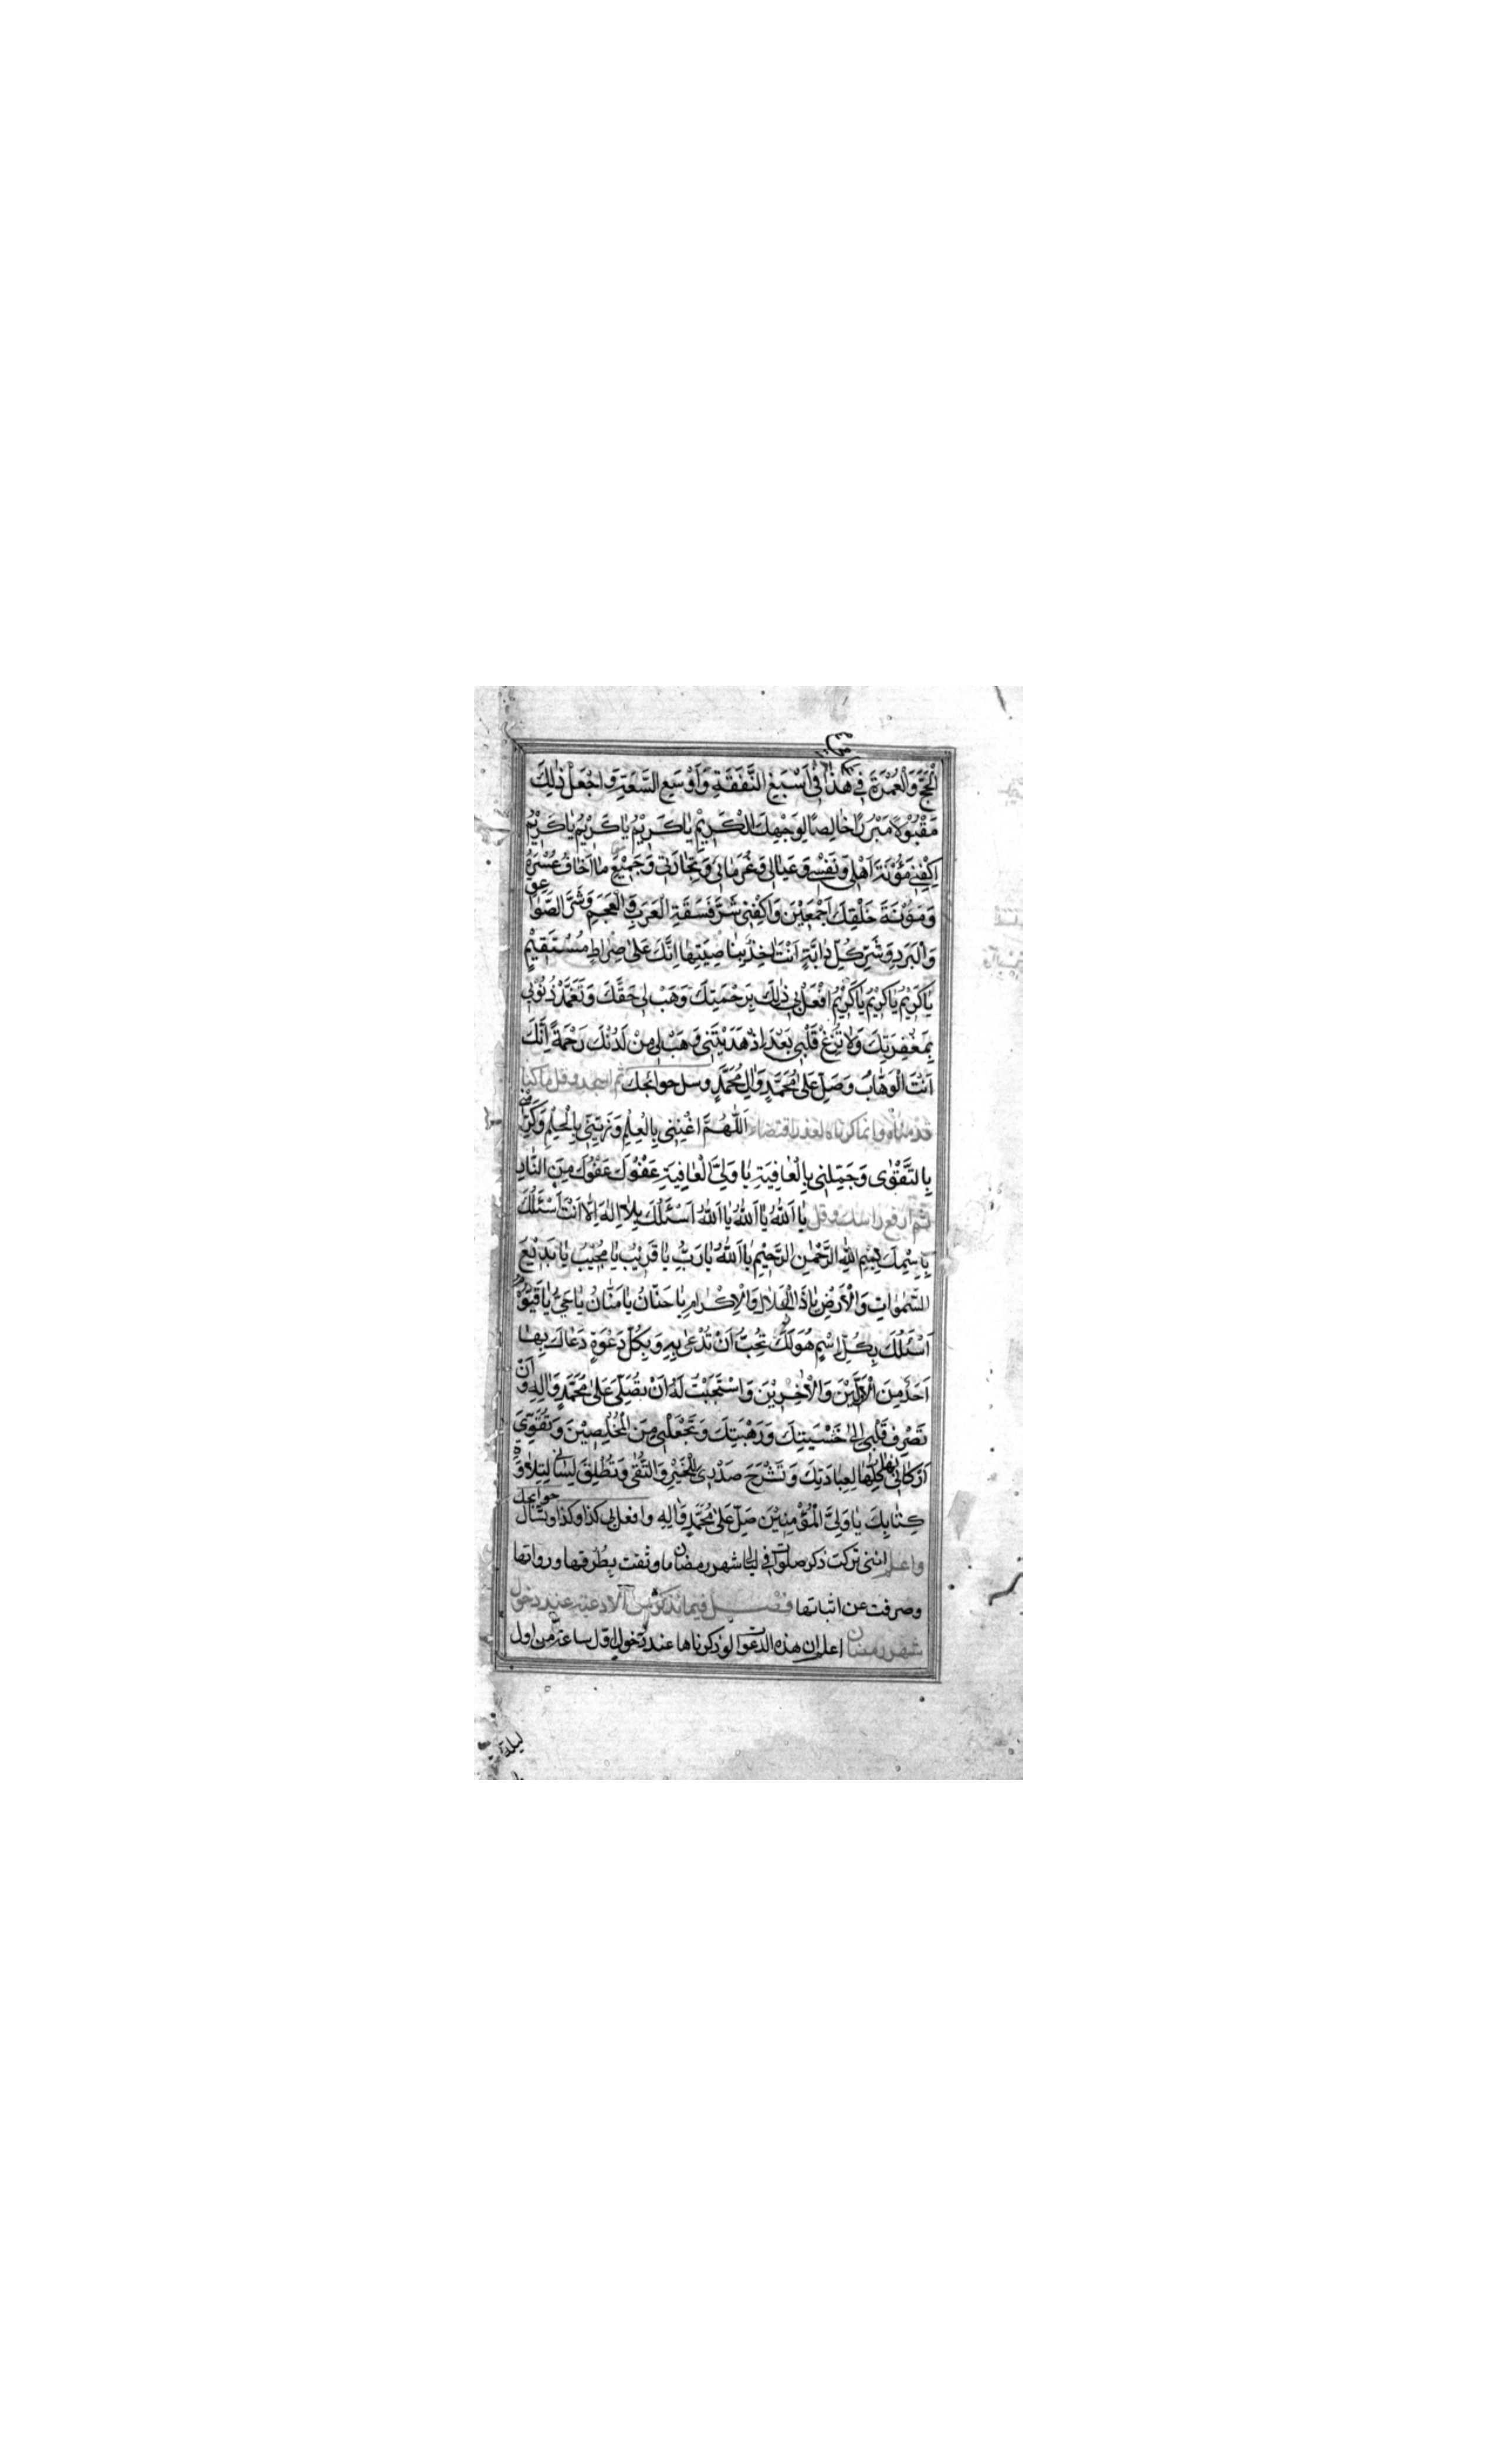 اَلْحَجَّ وَالْعُمْرَةَ فِي هٰذَا فِي اَسْبَغِ النَّفَقَةِ وَاَوْسَعِ السَّعَةِ وَاجْعَلْ ذٰلِكَ
مَقْبُوْلاً مَبْرُوْرًا خٰالِصًا لِوَجْهِكَ الْكَرِيْمِ يٰا كَرِيْمُ يٰا كَرِيْمُ يٰا كَرِيْمُ
اِكْفِنِيْ مَؤُنَةَ اَهْلِيْ وَنَفْسِيْ وَعَيٰالِيْ وَغُرَمٰائِيْ وَتِجٰارَتِيْ وَجَمِيْعِ مٰا اَخٰافُ عُسْرَهُ
وَمَؤُنَةَ خَلْقِكَ اَجْمَعِيْنَ وَاكْفِنِيْ شَرَّ فَسَقَةِ الْعَرَبِ وَالْعَجَمِ وَشَرَّ الصَّوٰاعِقِ
وَالْبَرَدِ وَشَرِّ كُلِّ دٰابَّةٍ اَنْتَ اٰخِذٌ بِنٰاصِيَتِهٰا اِنَّكَ عَلىٰ صِرٰاطٍ مُسْتَقِيْمٍ
يٰا كَرِيْمُ يٰا كَرِيْمُ يٰا كَرِيْمُ افْعَلْ بِيْ ذٰلِكَ بِرَحْمَتِكَ وَهَبْ لِيْ حَقَّكَ وَتَغَمَّدْ ذُنُوْبِيْ
بِمَغْفِرَتِكَ وَلاٰ تُزِغْ قَلْبِيْ بَعْدَ اِذْ هَدَيْتَنِيْ وَهَبْ لِيْ مِنْ لَدُنْكَ رَحْمَةً اِنَّكَ
اَنْتَ الْوَهّٰابُ وَصَلِّ عَلىٰ مُحَمَّدٍ وَاٰلِ مُحَمَّدٍ وسل حوائجك ثم اسجد وقل ما كنا
قدمناه وانما كررناه لعذر اقتضاه اَللّٰهُمَّ اَغْنِنِيْ بِالْعِلْمِ وَزَيِّنِّيْ بِالْحِلْمِ وَكَرِّمْنِيْ
بِالتَّقْوٰى وَجَمِّلْنِيْ بِالْعٰافِيَةِ يٰا وَلِيَّ الْعٰافِيَةِ عَفْوَكَ عَفْوَكَ مِنَ النّٰارِ
ثم ارفع راسك وقل يٰا اَللّٰهُ يٰا اَللّٰهُ يٰا اَللّٰهُ اَسْئَلُكَ بِلاٰ اِلٰهَ اِلاّٰ اَنْتَ اَسْئَلُكَ
بِاسْمِكَ بِسْمِ اللّٰهِ الرَّحْمٰنِ الرَّحِيْمِ يٰا اَللّٰهُ يٰا رَبُّ يٰا قَرِيْبُ يٰا مُجِيْبُ يٰا بَدِيْعَ
السَّمٰوٰاتِ وَالْاَرْضِ يٰا ذَا الْجَلاٰلِ وَالْاِكْرٰامِ يٰا حَنّٰانُ يٰا مَنّٰانُ يٰا حَيُّ يٰا قَيُّوْمُ
اَسْئَلُكَ بِكُلِّ اسْمٍ هُوَ لَكَ تُحِبُّ اَنْ تُدْعىٰ بِهِ وَبِكُلِّ دَعْوَةٍ دَعٰاكَ بِهٰا
اَحَدٌ مِنَ الْاَوَّلِيْنَ وَالْاٰخِرِيْنَ وَاسْتَجَبْتَ لَهُ اَنْ تُصَلِّيَ عَلىٰ مُحَمَّدٍ وَاٰلِهِ وَاَنْ
تَصْرِفَ قَلْبِيْ اِلىٰ خَشْيَتِكَ وَرَهْبَتِكَ وَتَجْعَلَنِيْ مِنَ الْمُخْلِصِيْنَ وَتُقَوِّيَ
اَرْكٰانِيْ كُلَّهٰا لِعِبٰادَتِكَ وَتَشْرَحَ صَدْرِيْ لِلْخَيْرِ وَالتُّقىٰ وَتُطْلِقَ لِسٰانِيْ لِتِلاٰوَةِ
كِتٰابِكَ يٰا وَلِيَّ الْمُؤْمِنِيْنَ صَلِّ عَلىٰ مُحَمَّدٍ وَاٰلِهِ وافعل بي كذا وكذا وتسأل حوائجك
واعلم انني تركت ذكر صلوات في ليالي شهر رمضان ما وثقت بطرقها ورواتها
وصرفت عن اثباتها فصل فيما نذكره من الادعية عند دخول
شهر رمضان اعلم ان هذه الدعوات لو ذكرناها عند دخول اول ساعة من اول
ليلة